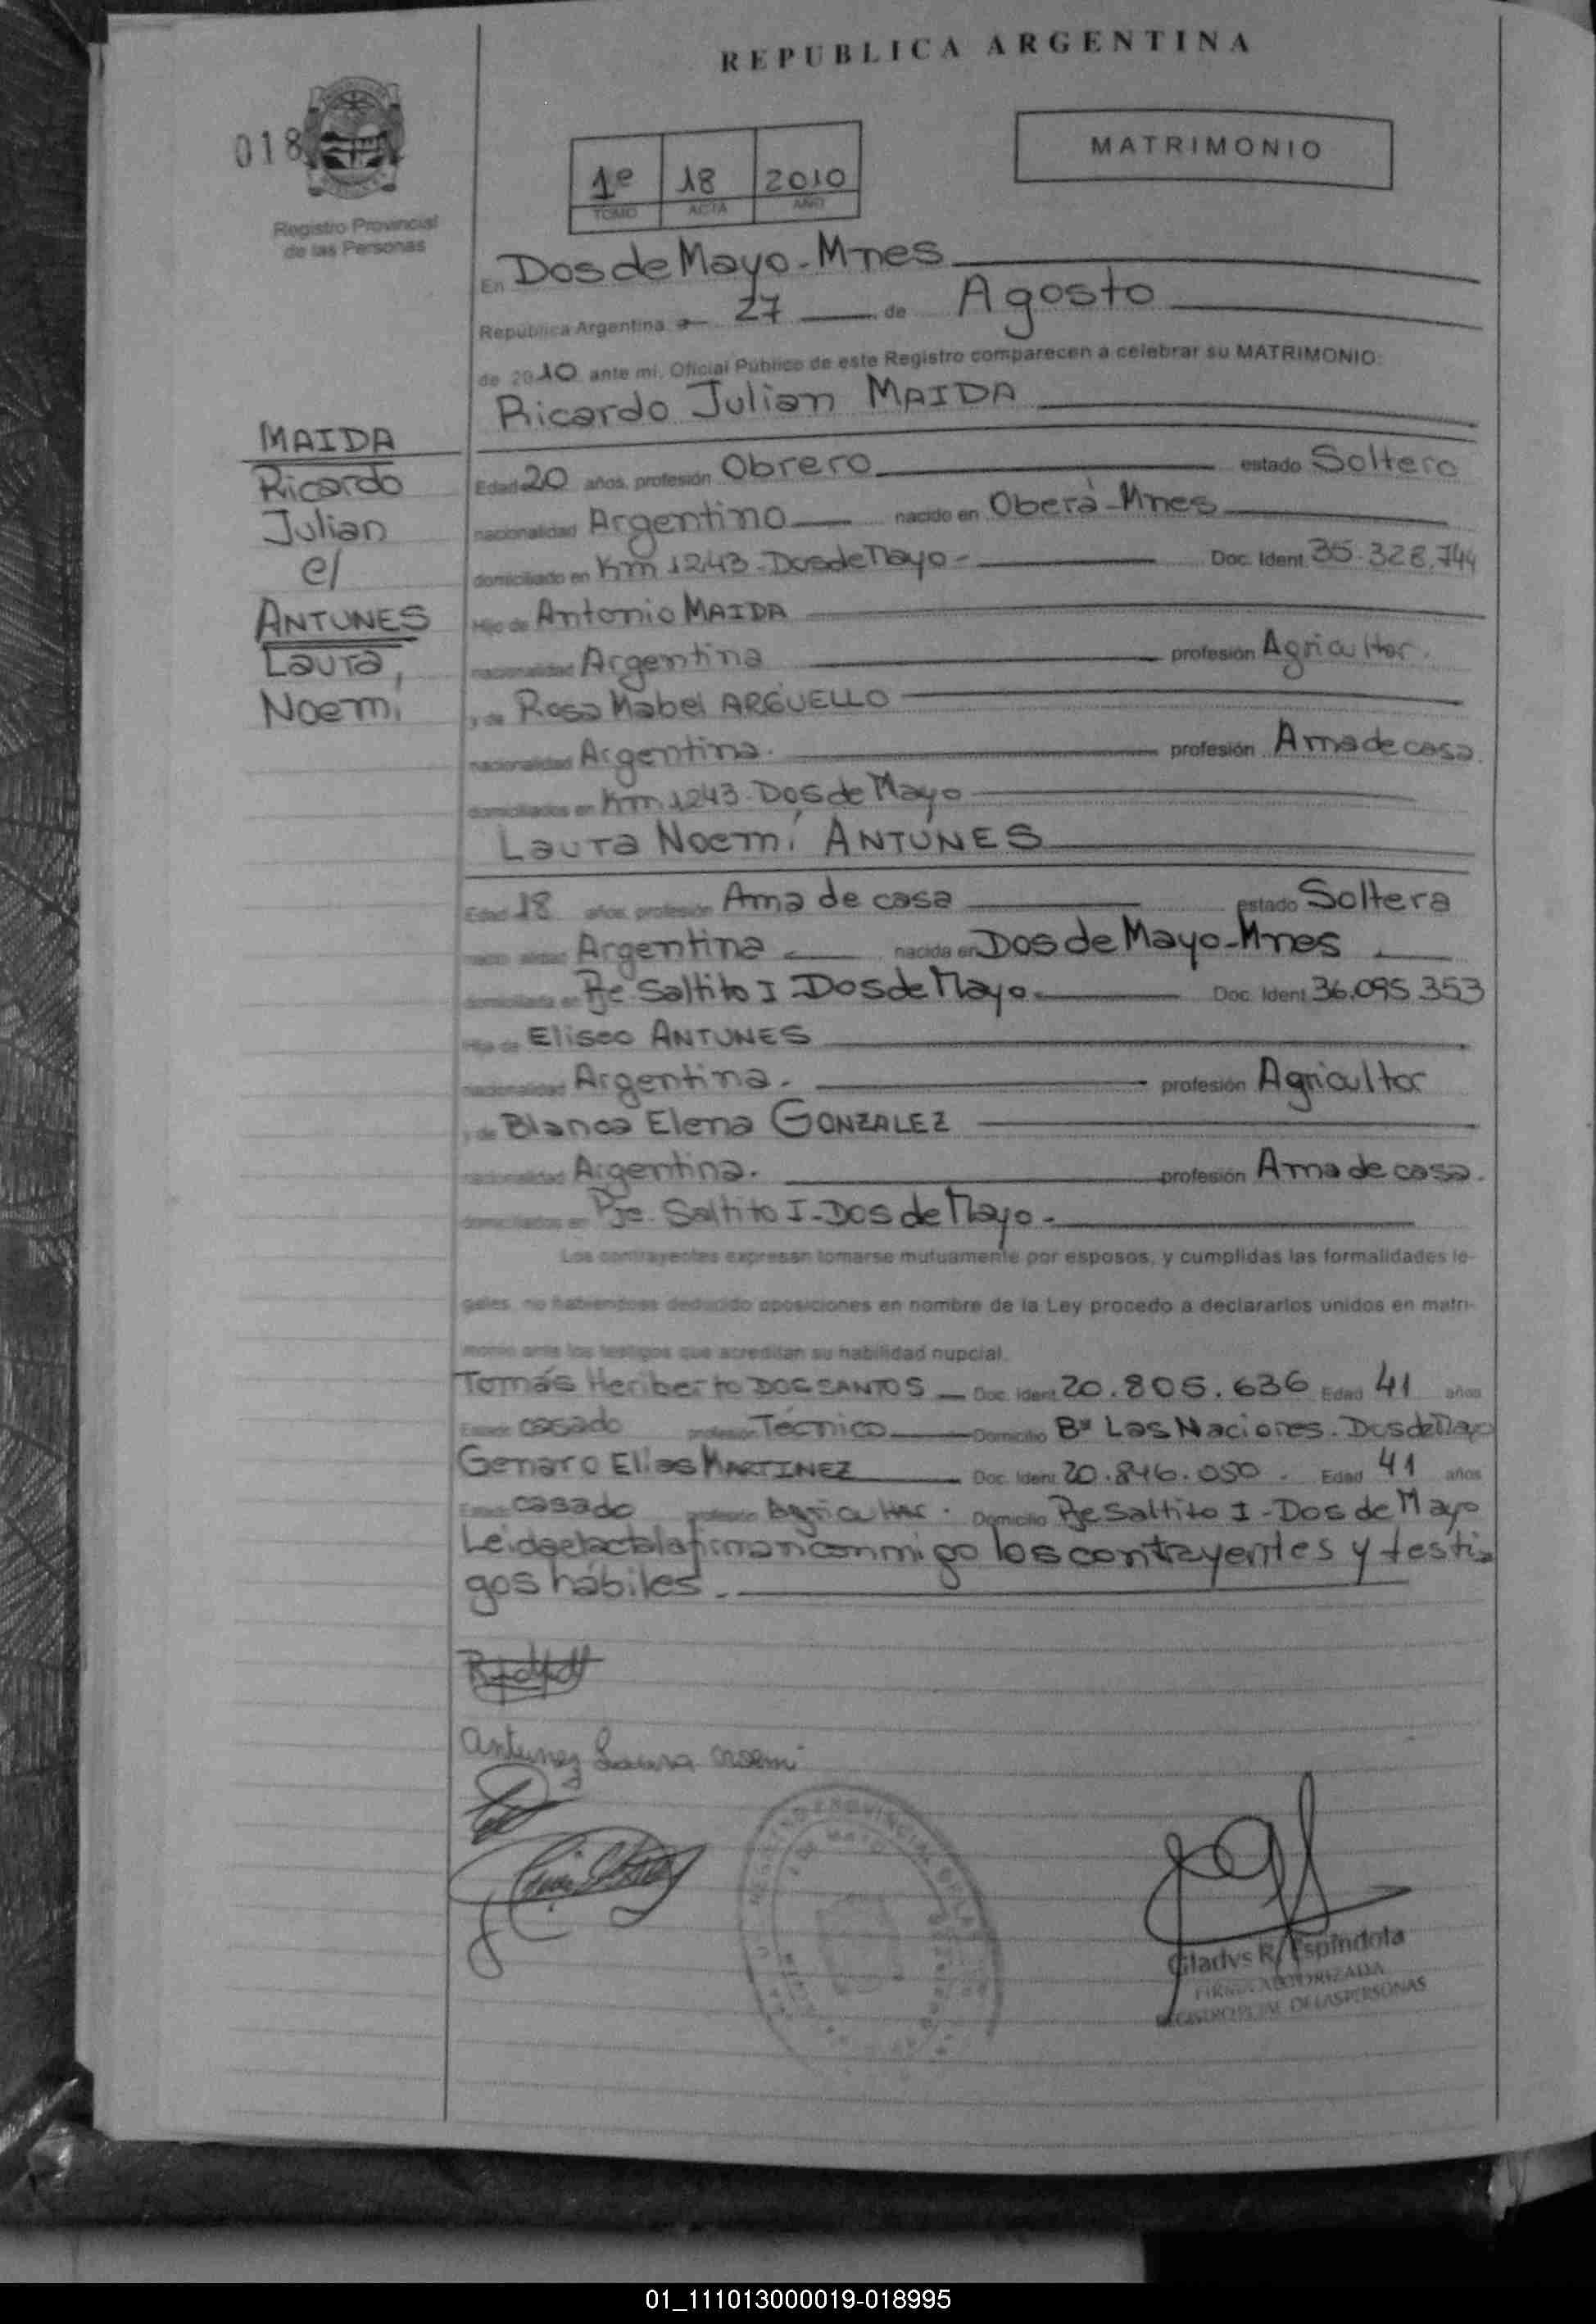 REPUBLICA ARGENTINA
018
Registro Provincial
de las Personas
1º 18 2010
TOMO ACTA AÑO
MATRIMONIO
En Dos de Mayo - Mnes
República Argentina a 27 de Agosto
de 2010 ante mi, Oficial Público de este Registro comparecen a celebrar su MATRIMONIO:
Ricardo Julian MAIDA
MAIDA
Ricardo
Julian
c/
ANTUNES
Laura,
Noemi
Edad 20 años, profesión Obrero estado Soltero
nacionalidad Argentino nacido en Oberá - Mnes
domiciliado en Km 1243 - Dos de Mayo - Doc. Ident. 35.328.744
Hijo de Antonio MAIDA
nacionalidad Argentina profesión Agricultor.
y de Rosa Mabel ARGUELLO
nacionalidad Argentina. profesión Ama de casa.
domiciliados en Km 1243 - Dos de Mayo
Laura Noemí ANTUNES
Edad 18 años, profesión Ama de casa estado Soltera
nacionalidad Argentina nacida en Dos de Mayo - Mnes
domiciliada en Pje Saltito I Dos de Mayo. Doc. Ident. 36.095.353
Hija de Eliseo ANTUNES
nacionalidad Argentina. profesión Agricultor
y de Blanca Elena GONZALEZ
nacionalidad Argentina. profesión Ama de casa.
domiciliados en Pje. Saltito I - Dos de Mayo -
Los contrayentes expresan tomarse mutuamente por esposos, y cumplidas las formalidades le-
gales, no habiendose deducido oposiciones en nombre de la Ley procedo a declararlos unidos en matri-
monio ante los testigos que acreditan su habilidad nupcial.
Tomás Heriberto DOS SANTOS Doc. Ident. 20.805.636 Edad 41 años
Estado casado profesión Técnico Domicilio Bº Las Naciones - Dos de Mayo
Genaro Elias MARTINEZ Doc. Ident. 20.846.050 Edad 41 años
Estado casado profesión Agricultor. Domicilio Pje Saltito I - Dos de Mayo
Leida el acta la firman conmigo los contrayentes y testi-
gos hábiles.
Antunez Laura Noemi
REGISTRO PROVINCIAL DE LAS
Gladys R. Espíndola
FIRMA AUTORIZADA
REGISTRO PCIAL. DE LAS PERSONAS
01_111013000019-018995